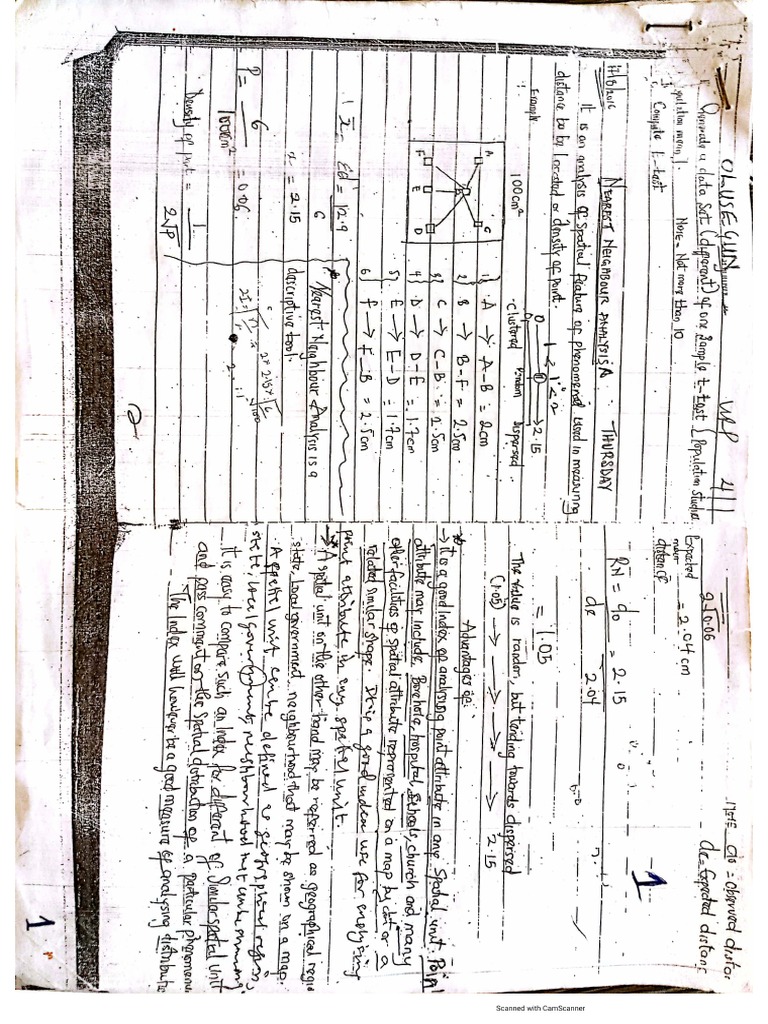 OLUSEGUN
Generate a data set (different) of one sample t-test (Population Studia
Note - Not more than 10
Compute t-test
NEAREST NEIGHBOUR ANALYSIS
THURSDAY
It is an analysis of spatial feature of phenomenal used in measuring
distance to be located or density of point.
Example
0 1 2.15
1 < 1" < 2
Clustered Random Dispersed
100cm²
A C
B
F E D
1) A → A-B = 2cm
2) B → B-F = 2.5cm
3) C → C-B = 2.5cm
4) D → D-E = 1.7cm
5) E → E-D = 1.7cm
6) F → F-B = 2.5cm
x̄ = Ed = 12.9
6
x = 2.15
* Nearest Neighbour Analysis is a
descriptive tool.
P = 6 = 0.06
100cm²
Density of Point = 1
2√P
2√0.06
Expected = 2.04cm
mean
do = observed distan
de = Expected distanc
RN = do = 2.15
de 2.04
1
= 1.05
The value is random, but tending towards dispersed
(1.05) → → → → → 2.15
Advantages of:
→ It is a good index of analysing point attribute in any spatial unit. Point
attribute may include, Borehole, hospital, schools, church and many
other facilities of spatial attribute represented on a map by dot or a
related similar shape. It is a good index use for analysing
point attribute in any spatial unit.
→ A spatial unit on the other hand may be referred as geographical regio
state, Local government, neighbourhood that may be shown on a map.
A spatial unit can be defined as geographical region,
state, local governments, neighbourhood
It is easy to compare such an index for different of similar spatial unit
and pass comment on the spatial distribution of a particular phenomenon
The Index will however be a good measure of analysing distributio
1
Scanned with CamScanner